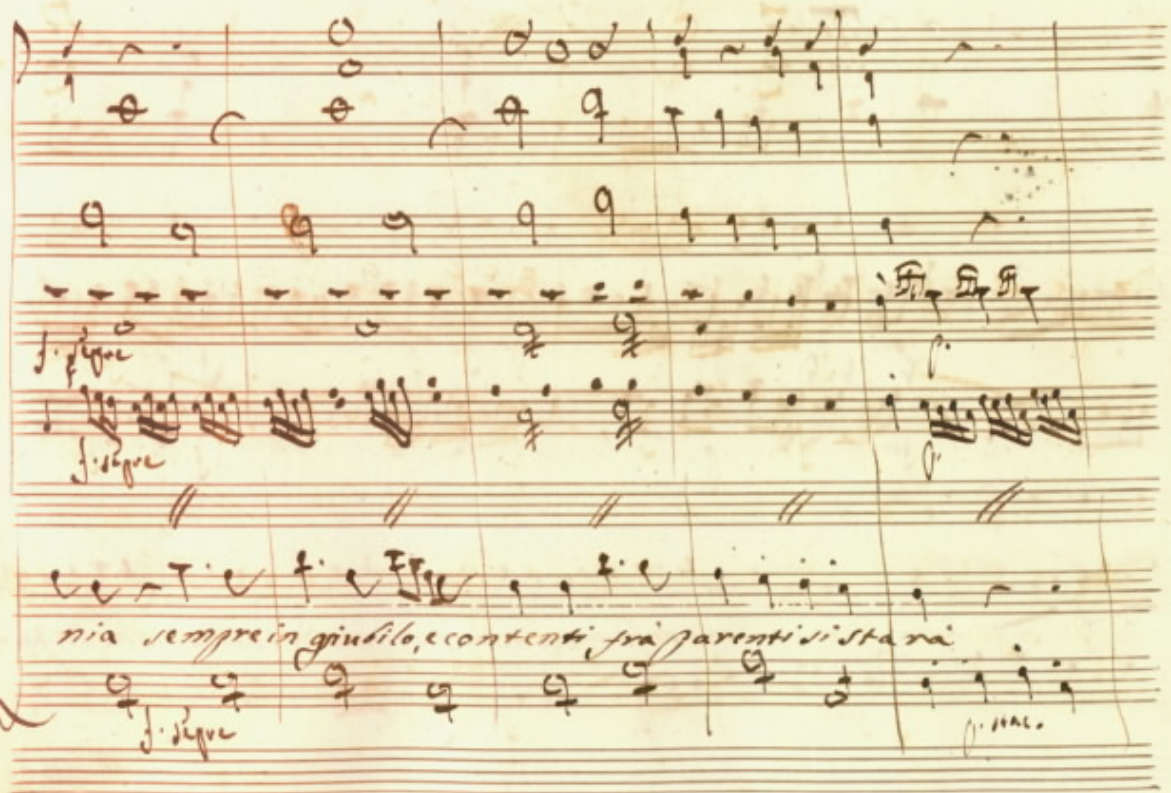 f. segue
p.
f. segue
p.
nia sempre in giubilo, e contenti frà parenti si starà
f. segue
p. stac.